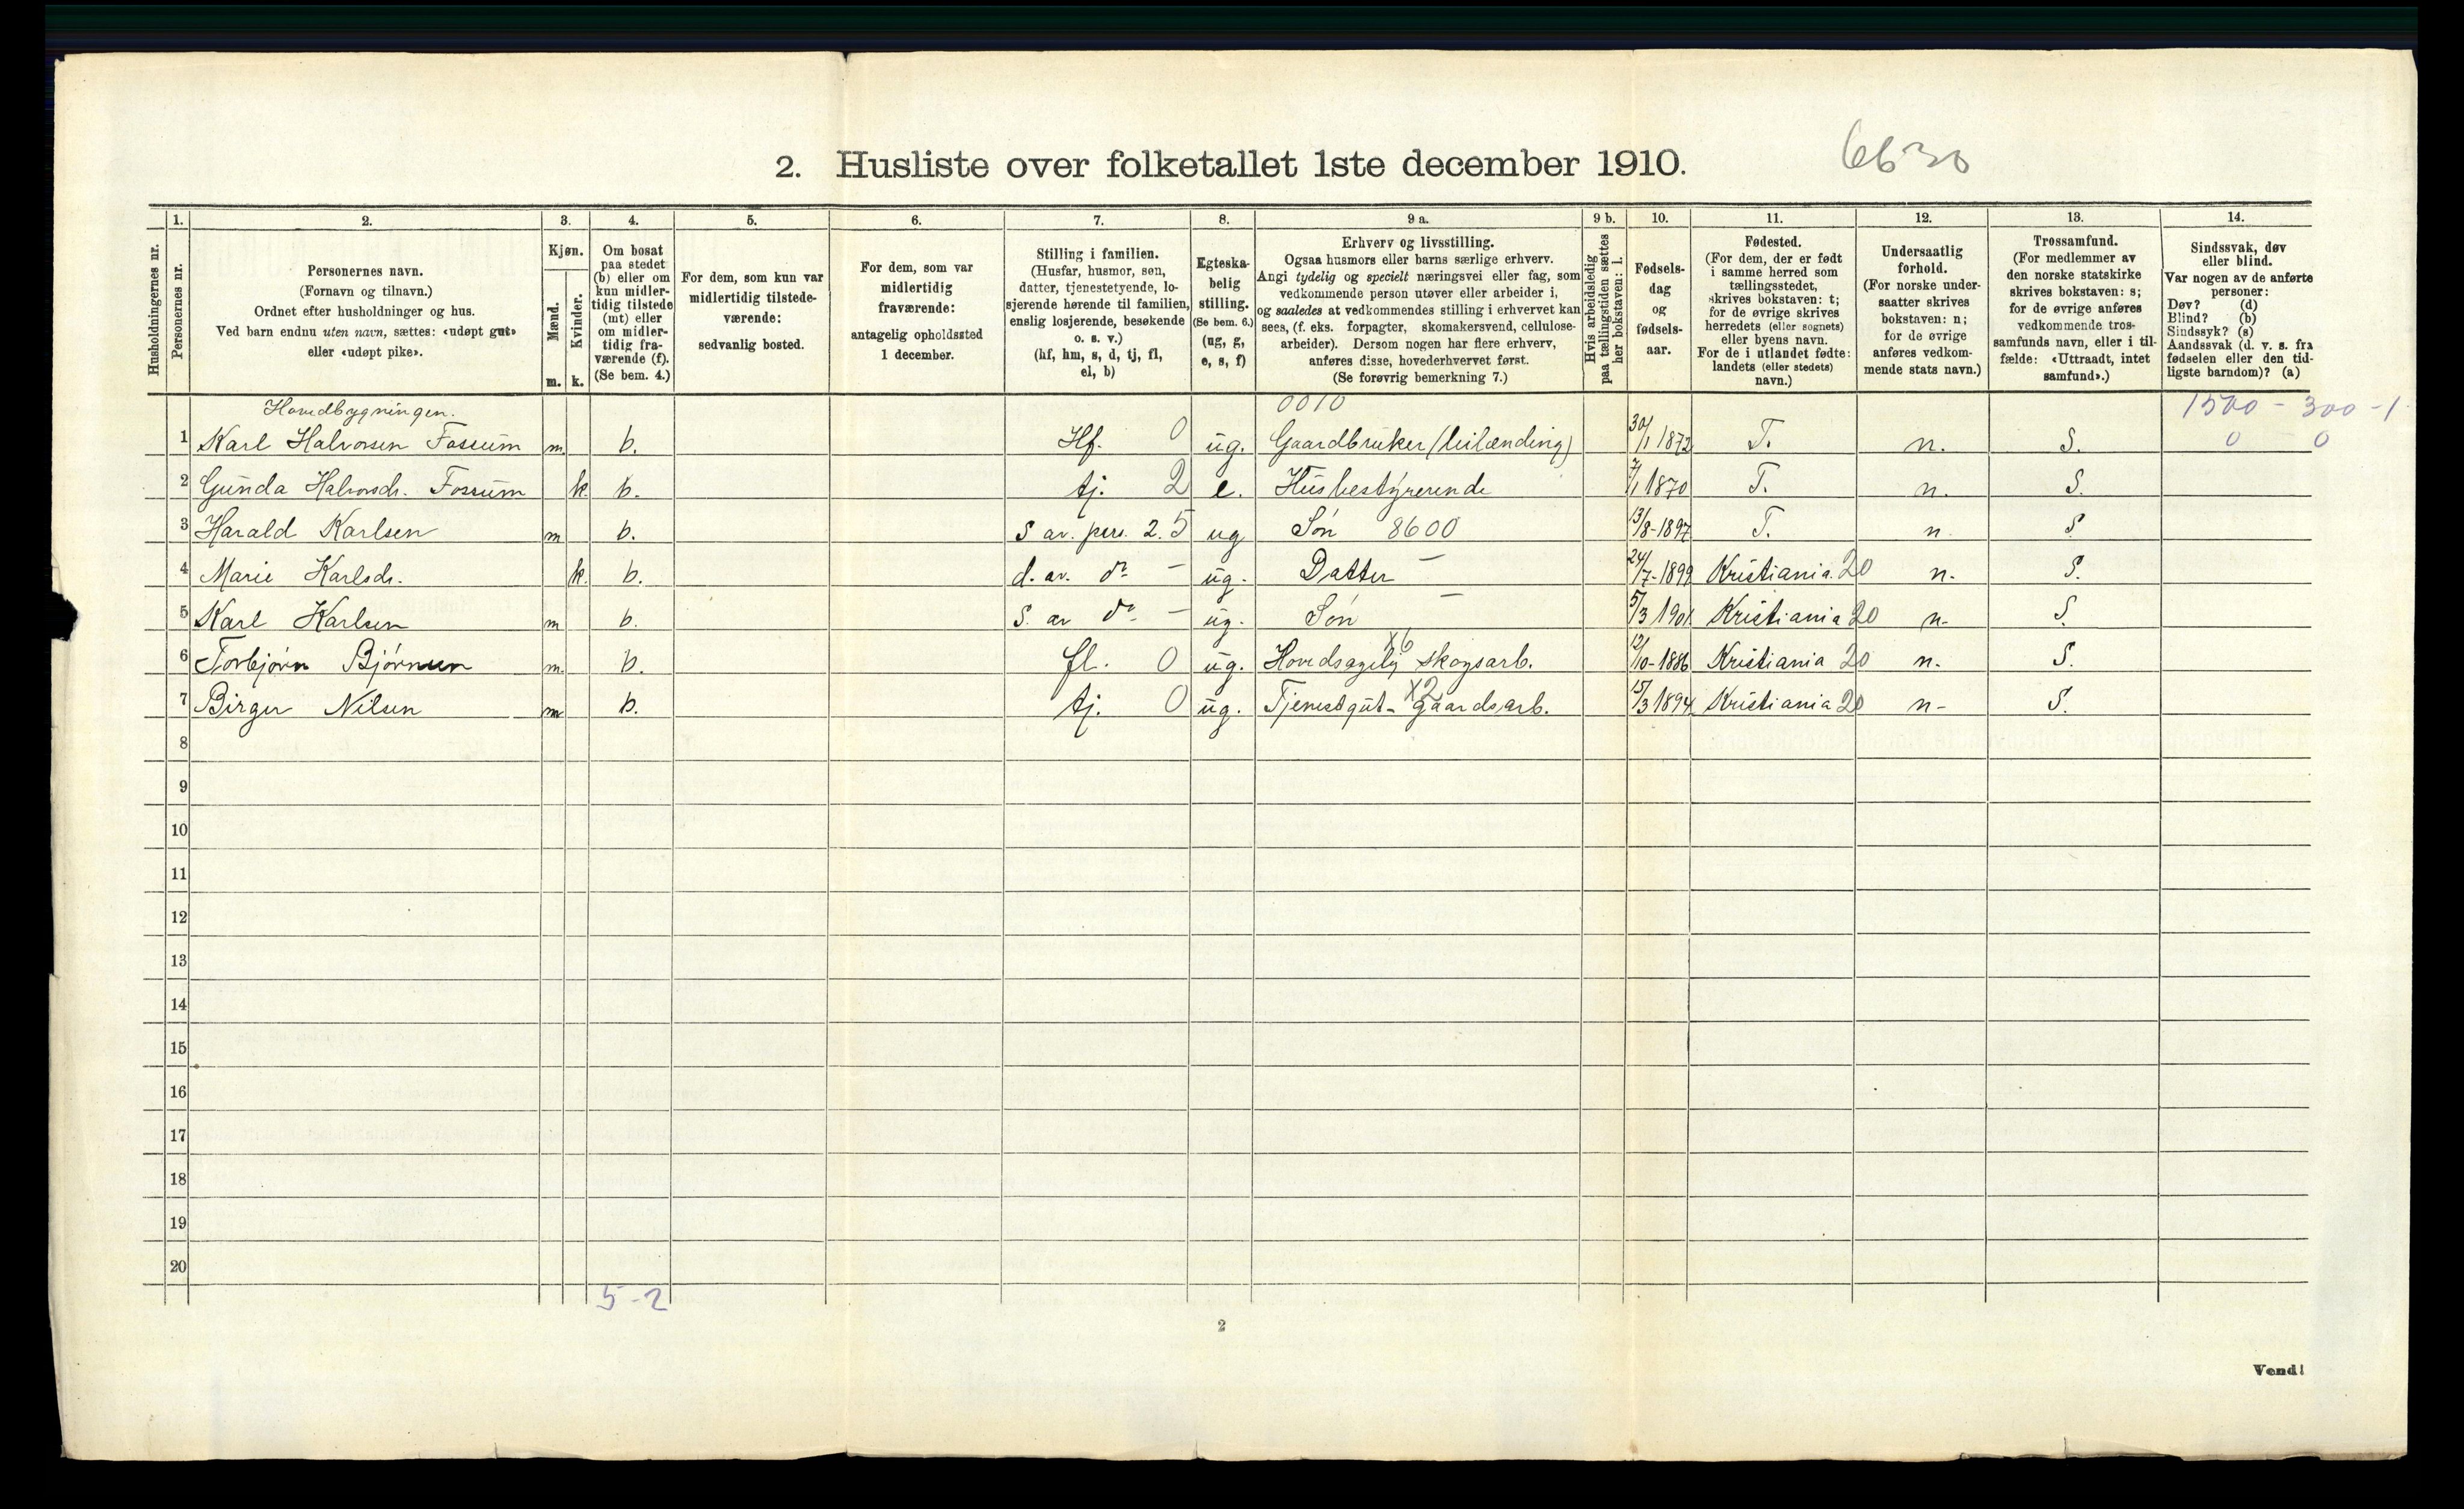 2. Husliste over folketallet 1ste december 1910.
6630
Husholdningernes nr.
1.
Personernes nr.
2.
Personernes navn.
(Fornavn og tilnavn.)
Ordnet efter husholdninger og hus.
Ved barn endnu uten navn, sættes: «udøpt gut»
eller «udøpt pike».
3.
Kjøn.
Mænd.
m.
Kvinder.
k.
4.
Om bosat
paa stedet
(b) eller om
kun midler-
tidig tilstede
(mt) eller
om midler-
tidig fra-
værende (f).
(Se bem. 4.)
5.
For dem, som kun var
midlertidig tilstede-
værende:
sedvanlig bosted.
6.
For dem, som var
midlertidig
fraværende:
antagelig opholdssted
1 december.
7.
Stilling i familien.
(Husfar, husmor, søn,
datter, tjenestetyende, lo-
sjerende hørende til familien,
enslig losjerende, besøkende
o. s. v.)
(hf, hm, s, d, tj, fl,
el, b)
8.
Egteska-
belig
stilling.
(Se bem. 6.)
(ug, g,
e, s, f)
9 a.
Erhverv og livsstilling.
Ogsaa husmors eller barns særlige erhverv.
Angi tydelig og specielt næringsvei eller fag, som
vedkommende person utøver eller arbeider i,
og saaledes at vedkommendes stilling i erhvervet kan
sees, (f. eks. forpagter, skomakersvend, cellulose-
arbeider). Dersom nogen har flere erhverv,
anføres disse, hovederhvervet først.
(Se forøvrig bemerkning 7.)
9 b.
Hvis arbeidsledig
paa tællingstiden sættes
her bokstaven: l.
10.
Fødsels-
dag
og
fødsels-
aar.
11.
Fødested.
(For dem, der er født
i samme herred som
tællingsstedet,
skrives bokstaven: t;
for de øvrige skrives
herredets (eller sognets)
eller byens navn.
For de i utlandet fødte:
landets (eller stedets)
navn.)
12.
Undersaatlig
forhold.
(For norske under-
saatter skrives
bokstaven: n;
for de øvrige
anføres vedkom-
mende stats navn.)
13.
Trossamfund.
(For medlemmer av
den norske statskirke
skrives bokstaven: s;
for de øvrige anføres
vedkommende tros-
samfunds navn, eller i til-
fælde: «Uttraadt, intet
samfund».)
14.
Sindssvak, døv
eller blind.
Var nogen av de anførte
personer:
Døv? (d)
Blind? (b)
Sindssyk? (s)
Aandssvak (d. v. s. fra
fødselen eller den tid-
ligste barndom)? (a)
Hovedbygningen. 0010 1500 - 300 - 1
1 Karl Halvorsen Fossum m b. Hf. 0 ug. Gaardbruker (leilænding) 30/1 1872 T. n. S. 0 0
2 Gunda Halvorsdr. Fossum k. b. tj. 2 e. Husbestyrerinde 7/1 1870 T. n. S.
3 Harald Karlsen m b. S av. pers. 2. 5 ug Søn 8600 13/8-1897 T. n. S
4 Marie Karlsdr. k. b. d. av. do - ug. Datter - 24/7-1899 Kristiania. 20 n. S.
5 Karl Karlsen m b. S. av do - ug. Søn - 5/3 1901 Kristiania 20 n- S.
6 Torbjørn Bjørnsen m. b. fl. 0 ug. Hovedsagelig x6 skogsarb. 12/10-1886 Kristiania 20 n. S.
7 Birger Nilsen m b. tj. 0 ug. Tjenestgut- x2 gaardsarb. 15/3 1894 Kristiania 20 n- S.
8
9
10
11
12
13
14
15
16
17
18
19
20
5-2
2
Vend!